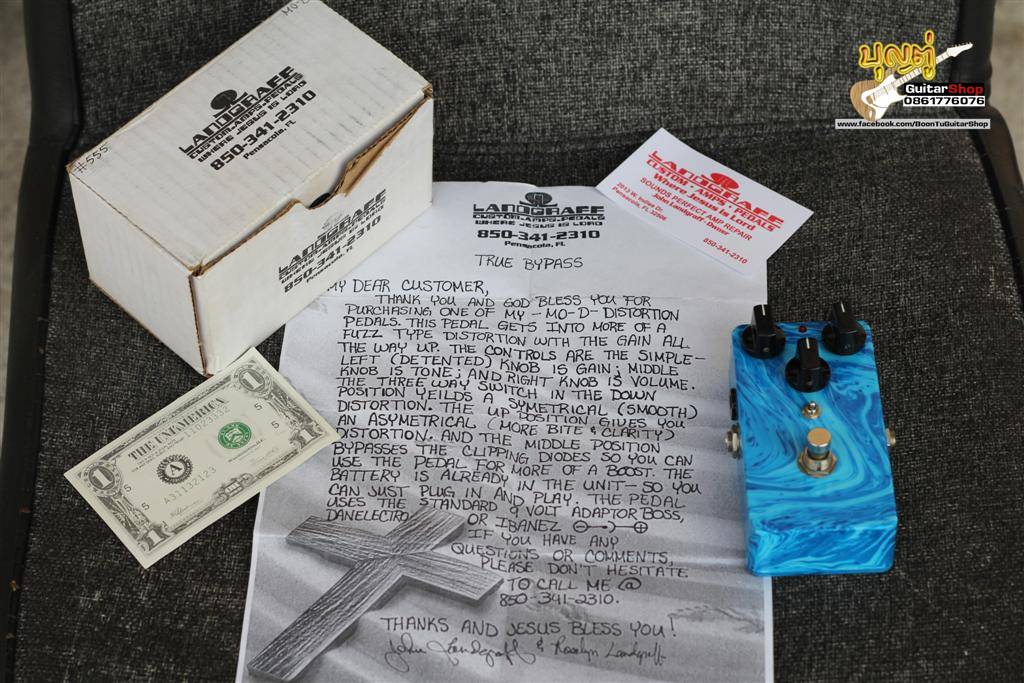 บุญตู่
GuitarShop
0861776076
www.facebook.com/BoonTuGuitarShop
MO-D
#555
LANDGRAFF
CUSTOM•AMPS•PEDALS
WHERE JESUS IS LORD
850-341-2310
Pensacola, FL
LANDGRAFF
CUSTOM•AMPS•PEDALS
WHERE JESUS IS LORD
850-341-2310
Pensacola, FL
LANDGRAFF
CUSTOM • AMPS • PEDALS
Where Jesus is Lord
SOUNDS PERFECT AMP REPAIR
John Landgraff-Owner
Pensacola, FL 32506
850-341-2310
LANDGRAFF
CUSTOM•AMPS•PEDALS
WHERE JESUS IS LORD
850-341-2310
Pensacola, FL
TRUE BYPASS
MY DEAR CUSTOMER,
THANK YOU AND GOD BLESS YOU FOR
PURCHASING ONE OF MY -MO-D- DISTORTION
PEDALS. THIS PEDAL GETS INTO MORE OF A
FUZZ TYPE DISTORTION WITH THE GAIN ALL
THE WAY UP. THE CONTROLS ARE THE SIMPLE-
LEFT (DETENTED) KNOB IS GAIN; MIDDLE
KNOB IS TONE; AND RIGHT KNOB IS VOLUME.
THE THREE WAY SWITCH IN THE DOWN
POSITION YEILDS A SYMETRICAL (SMOOTH)
DISTORTION. THE UP POSITION GIVES YOU
AN ASYMETRICAL (MORE BITE & CLARITY)
DISTORTION. AND THE MIDDLE POSITION
BYPASSES THE CLIPPING DIODES SO YOU CAN
USE THE PEDAL FOR MORE OF A BOOST. THE
BATTERY IS ALREADY IN THE UNIT- SO YOU
CAN JUST PLUG IN AND PLAY. THE PEDAL
USES THE STANDARD 9 VOLT ADAPTOR BOSS,
DANELECTRO OR IBANEZ
IF YOU HAVE ANY
QUESTIONS OR COMMENTS,
PLEASE DON'T HESITATE
TO CALL ME @
850-341-2310.
THANKS AND JESUS BLESS YOU!
John Landgraff & Rosalyn Landgraff
1
1
THE UNAMERICA
5
5
A
A31132123
5
5
1
1